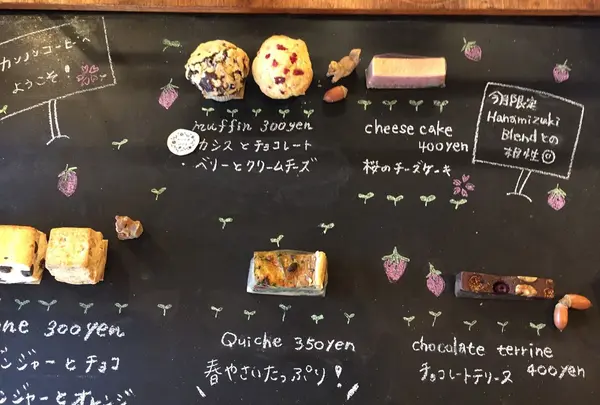 カンノンコーヒーへ
ようこそ!
muffin 300yen
カシスとチョコレート
・ベリーとクリームチーズ
cheese cake
400yen
桜のチーズケーキ
今月限定
Hanamizuki
Blendとの
相性◎
ne 300yen
ンジャーとチョコ
ンジャーとオレンジ
Quiche 350yen
春やさいたっぷり!
chocolate terrine
チョコレートテリーヌ 400yen